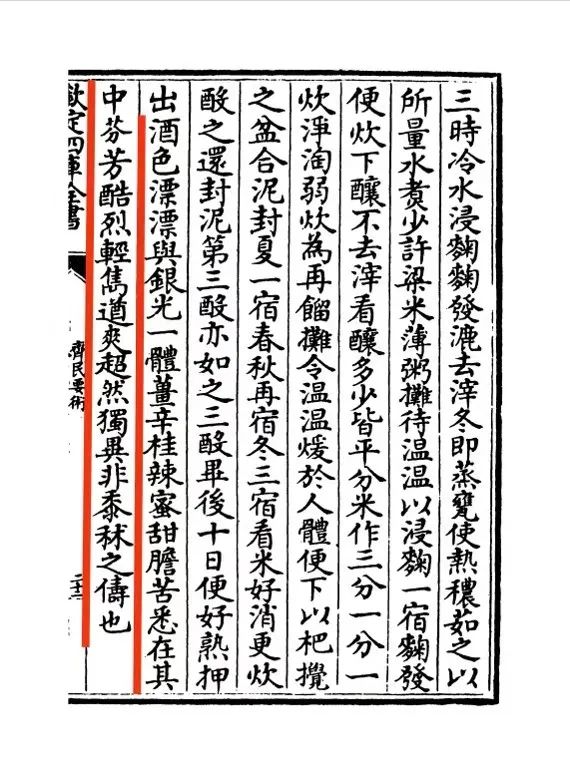 三時冷水浸麴麴發漉去滓冬即蒸甕使熱穰茹之以
所量水煑少許粱米薄粥攤待温温以浸麴一宿麴發
便炊下釀不去滓看釀多少皆平分米作三分一分一
炊淨淘弱炊為再餾攤令温温煖於人體便下以杷攪
之盆合泥封夏一宿春秋再宿冬三宿看米好消更炊
酘之還封泥第三酘亦如之三酘畢後十日便好熟押
出酒色漂漂與銀光一體薑辛桂辣蜜甜膽苦悉在其
中芬芳酷烈輕雋遒爽超然獨異非黍秫之儔也
欽定四庫全書
齊民要術